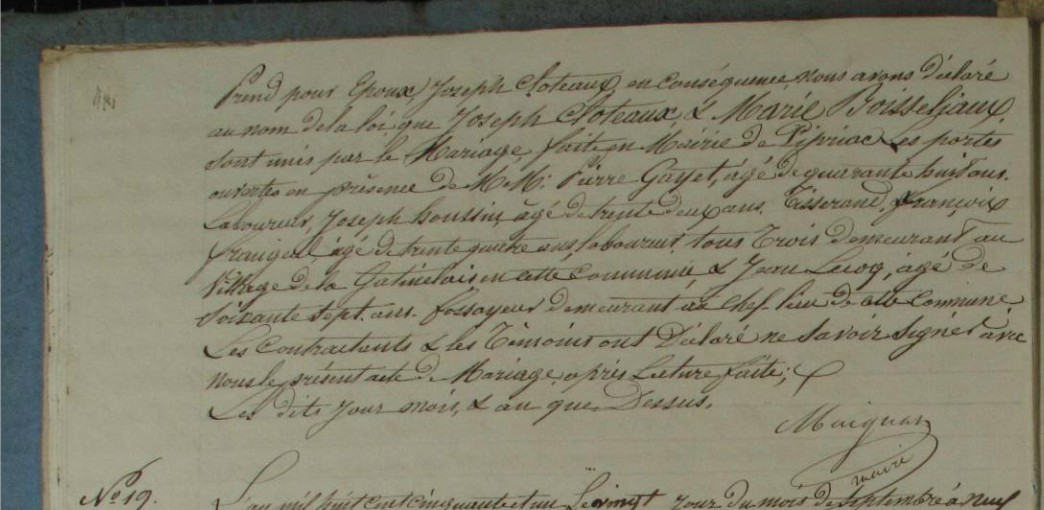 Prend pour Epoux, Joseph Cloteaux, en conséquence, nous avons déclaré
au nom de la loi, que Joseph Cloteaux & Marie Boisseljaux,
sont unis par le Mariage, fait en Mairie de Pipriac les portes
ouvertes en présence de M.M. Pierre Gayet, âgé de quarante huit ans.
Laboureur, Joseph houssin, âgé de trente deux ans. Tisserand, françoix
âgé de trente quatre ans, laboureur, tous Trois demeurant au
Village de la Gatinelais, en cette Commune, & Jean Lecoq, âgé de
Soixante Sept ans. fossoyeur demeurant au Chef-lieu de cette Commune
Les Contractants & les Témoins ont Déclaré ne Savoir Signer avec
nous le présent acte de Mariage, après Lecture faite;
Les dits Jour mois, & an que Dessus.
Maignan
maire
No 19.
L'an mil huit cent cinquante et un Le vingt Jour du mois de Septembre à neuf